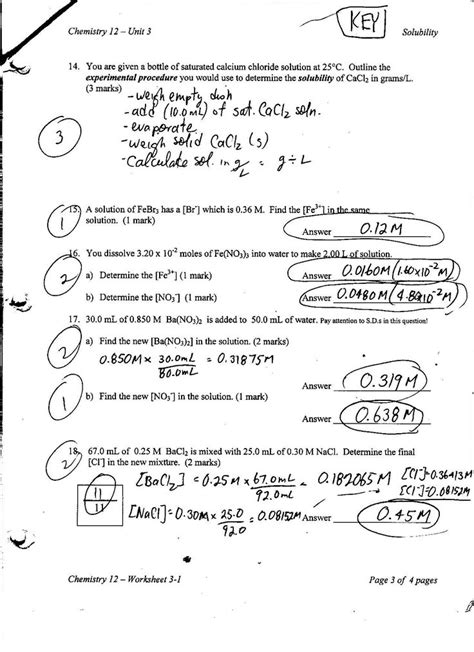 KEY
Chemistry 12 – Unit 3 Solubility
14. You are given a bottle of saturated calcium chloride solution at 25°C. Outline the
experimental procedure you would use to determine the solubility of CaCl₂ in grams/L.
(3 marks)
- weigh empty dish
- add (10.0 mL) of sat. CaCl₂ soln.
- evaporate
- weigh solid CaCl₂ (s)
- Calculate sol. in g/L = g ÷ L
3
15. A solution of FeBr₃ has a [Br⁻] which is 0.36 M. Find the [Fe³⁺] in the same
solution. (1 mark)
Answer 0.12 M
1
16. You dissolve 3.20 x 10⁻² moles of Fe(NO₃)₃ into water to make 2.00 L of solution.
a) Determine the [Fe³⁺] (1 mark) Answer 0.0160M (1.60x10⁻²M)
b) Determine the [NO₃⁻] (1 mark) Answer 0.0480M (4.80x10⁻²M)
2
17. 30.0 mL of 0.850 M Ba(NO₃)₂ is added to 50.0 mL of water. Pay attention to S.D.s in this question!
a) Find the new [Ba(NO₃)₂] in the solution. (2 marks)
2
0.850M x 30.0mL/80.0mL = 0.31875M
Answer 0.319 M
b) Find the new [NO₃⁻] in the solution. (1 mark)
1
Answer 0.638 M
18. 67.0 mL of 0.25 M BaCl₂ is mixed with 25.0 mL of 0.30 M NaCl. Determine the final
[Cl⁻] in the new mixture. (2 marks)
2
[BaCl₂] = 0.25M x 67.0mL/92.0mL = 0.182065M [Cl⁻]=0.36413M
[Cl⁻]=0.08152M
11
11
[NaCl] = 0.30M x 25.0/92.0 = 0.08152M Answer 0.45M
Chemistry 12 – Worksheet 3-1 Page 3 of 4 pages